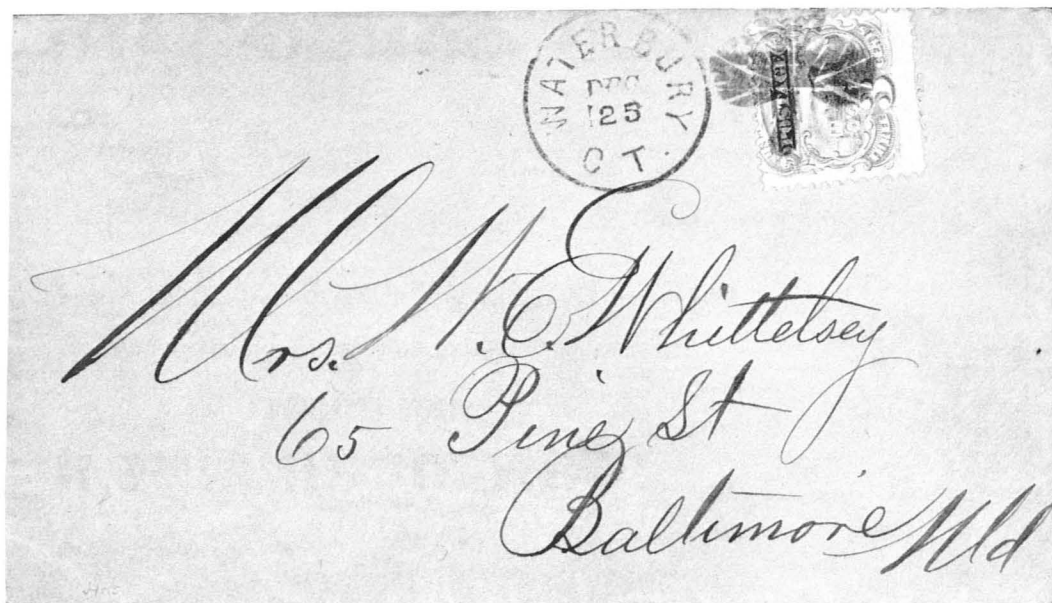 WATERBURY
DEC
25
CT.
POSTAGE
Mrs. W. E. Whittelsey
65 Pine St
Baltimore Md